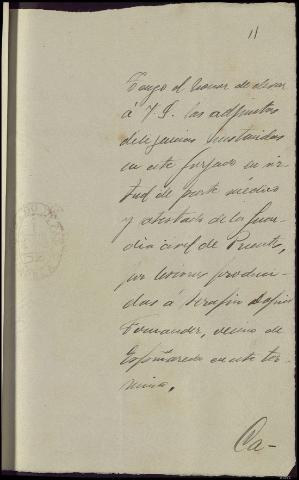 11
Tengo el honor de elevar
á V.S. las adjuntas
diligencias instruidas
en este Juzgado en vir-
tud de parte médico
y atestado de la Guar-
dia civil de Puente,
por lesiones produci-
das á Serafín
Fernandez, vecino de
Espiñaredo en este tér-
mino.
Ca-